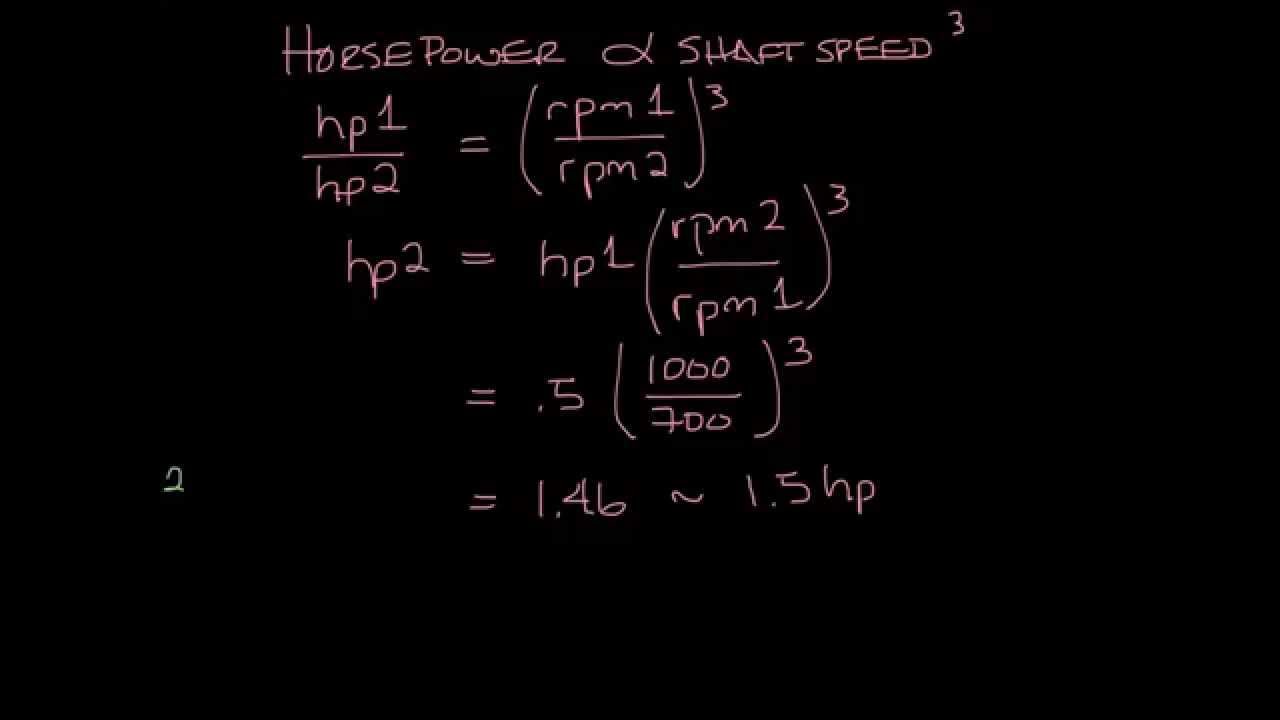 HORSEPOWER α SHAFT SPEED³
hp1/hp2 = (rpm1/rpm2)³
hp2 = hp1 (rpm2/rpm1)³
= .5 (1000/700)³
2
= 1.46 ~ 1.5hp